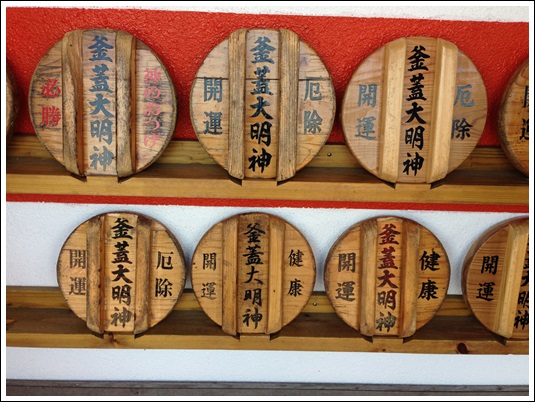 釜蓋大明神
必勝
厄除
釜蓋大明神
開運
厄除
釜蓋大明神
開運
開運
厄除
釜蓋大明神
開運
健康
釜蓋大明神
開運
健康
釜蓋大明神
開運
釜蓋大明神
開運